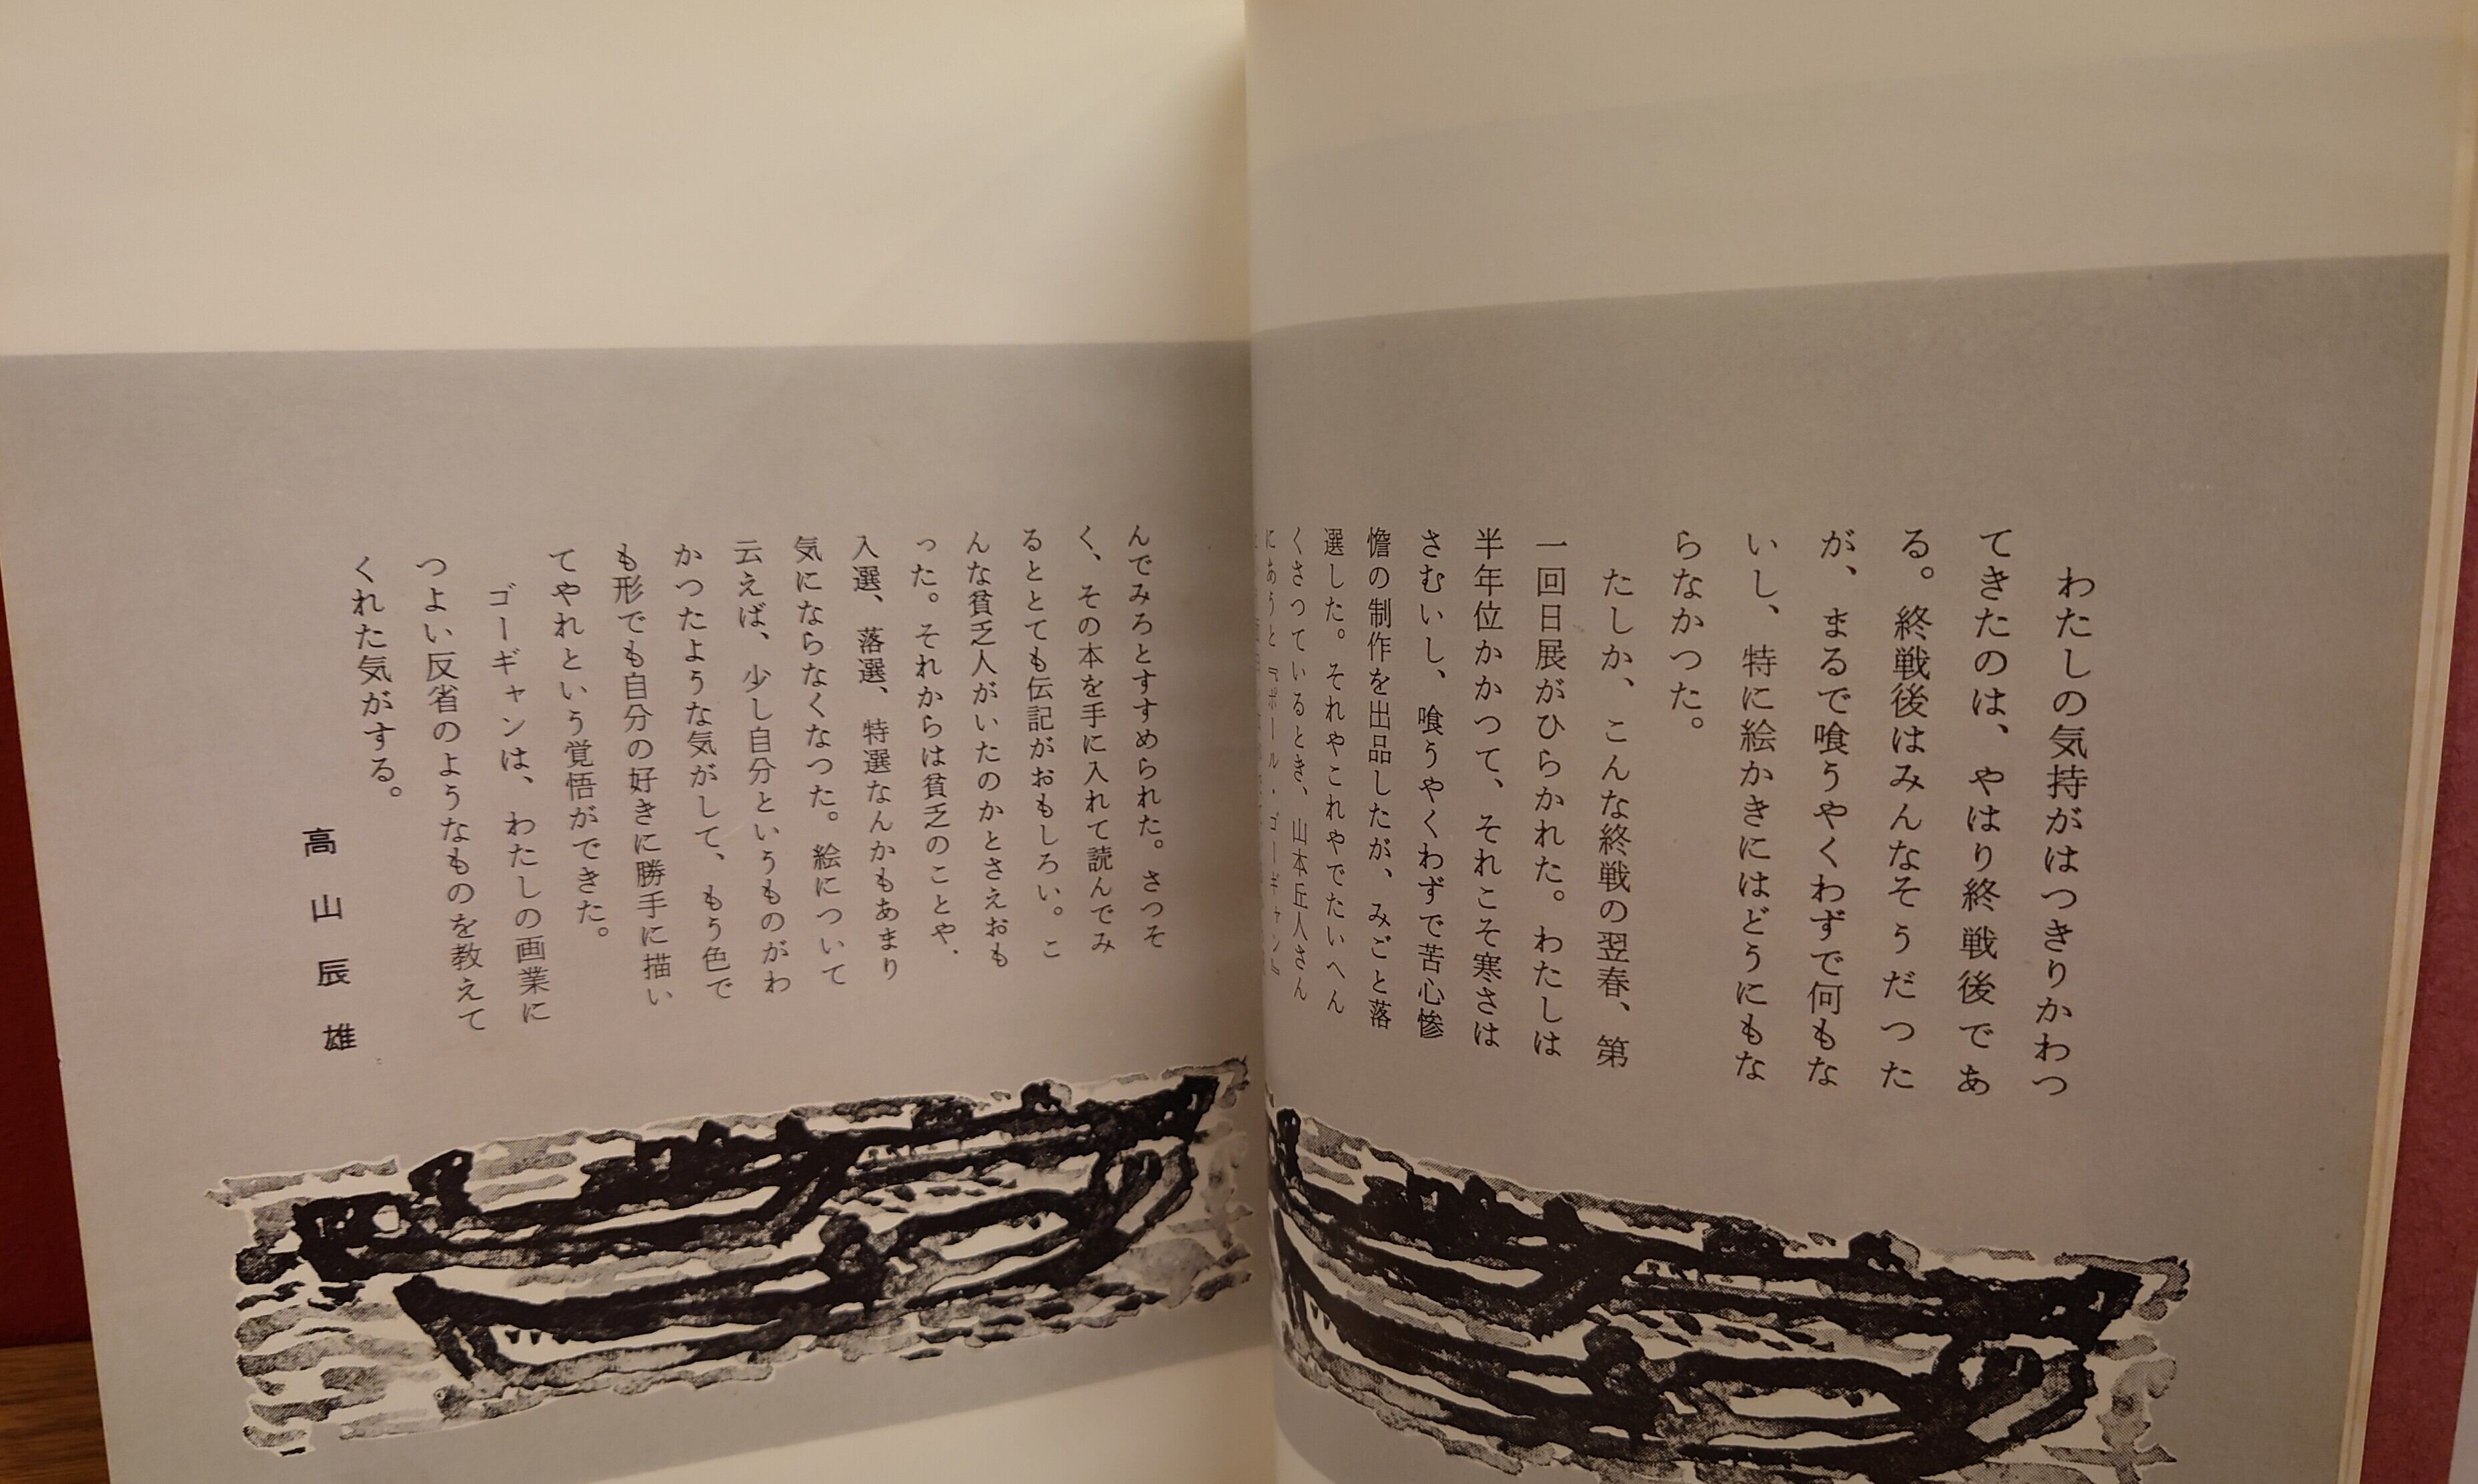 わたしの気持がはつきりかわつ
てきたのは、やはり終戦後であ
る。終戦後はみんなそうだった
が、まるで喰うやくわずで何もな
いし、特に絵かきにはどうにもな
らなかつた。
たしか、こんな終戦の翌春、第
一回日展がひらかれた。わたしは
半年位かかつて、それこそ寒さは
さむいし、喰うやくわずで苦心惨
憺の制作を出品したが、みごと落
選した。それやこれやでたいへん
くさつているとき、山本丘人さん
にあうと『ポール・ゴーギャン』
んでみろとすすめられた。さつそ
く、その本を手に入れて読んでみ
るととても伝記がおもしろい。こ
んな貧乏人がいたのかとさえおも
った。それからは貧乏のことや、
入選、落選、特選なんかもあまり
気にならなくなつた。絵について
云えば、少し自分というものがわ
かつたような気がして、もう色で
も形でも自分の好きに勝手に描い
てやれという覚悟ができた。
ゴーギャンは、わたしの画業に
つよい反省のようなものを教えて
くれた気がする。
高山辰雄